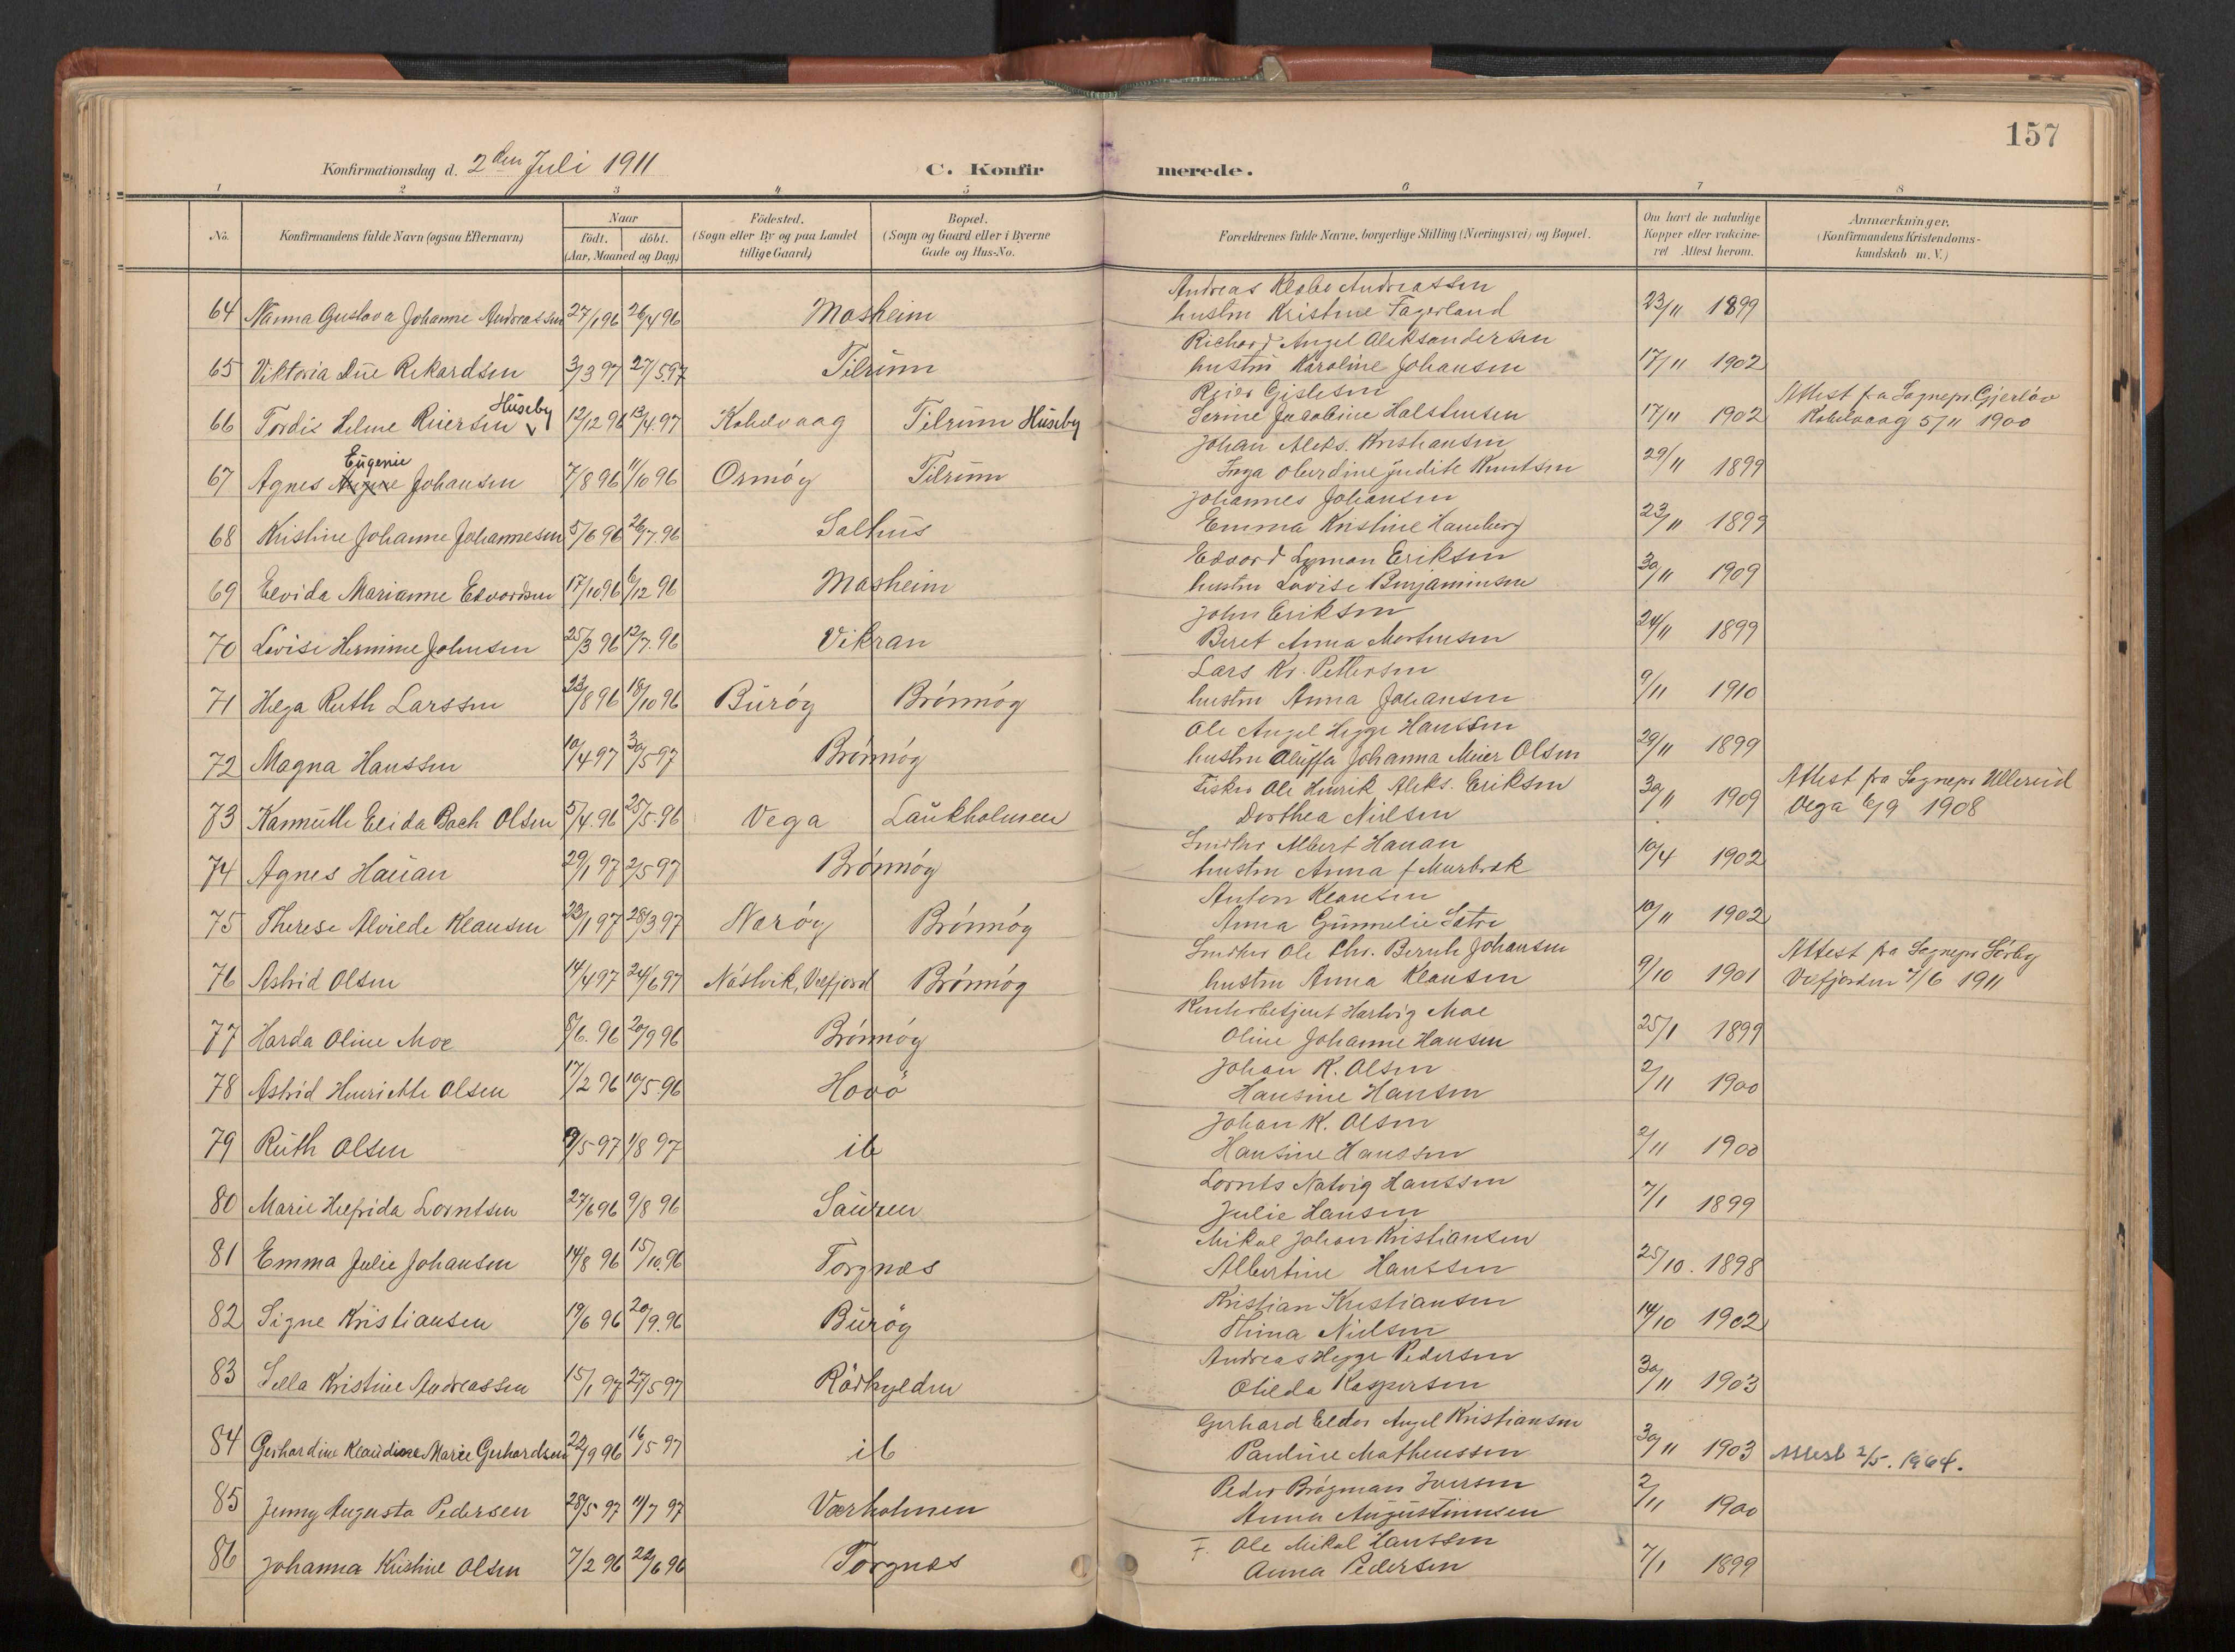 157
Konfirmationsdag d. 2den Juli 1911 C. Konfir merede.
1 2 3 4 5 6 7 8
No. Konfirmandens fulde Navn (ogsaa Efternavn) Naar født. døbt. (Aar, Maaned og Dag) Födested. (Sogn eller By og paa Landet tillige Gaard) Bopæl. (Sogn og Gaard eller i Byerne Gade og Hus-No. Forældrenes fulde Navne, borgerlige Stilling (Næringsvei) og Bopæl. Om havt de naturlige Kopper eller vakcineret Attest herom. Anmærkninger, (Konfirmandens Kristendomskundskab m. V.)
Andreas Klabo Andreassen
64 Nanna Gustava Johanne Andreassen 27/1 96 26/4 96 Mosheim hustru Kristine Fagerland 23/11 1899
Richard Angel Aleksandersen
65 Viktoria Rikardsen 3/3 97 27/5 97 Tilrum hustru Karoline Johansen 17/11 1902
Reier Gislesen
66 Tordis Helme Reiersen Huseby 12/12 96 13/4 97 Kobelvaag Tilrum Huseby Jakobine Halstensen 17/11 1902 Attest fra Sognepr. Gjerløv
Kobelvaag 5/11 1900
Johan Aleks. Kristiansen
67 Agnes Eugenie Johansen 7/8 96 11/10 96 Ormøy Tilrum Inga Oluvdine Judite Knutsen 29/11 1899
Johannes Johansen
68 Kristine Johanne Johannesen 5/6 96 26/7. 96 Salhus Emma Kristine Hamberg 23/11 1899
Edvard Lyman Eriksen
69 Elvida Marianne Edvardsen 17/10 96 6/12 96 Mosheim hustru Lovise Benjaminsen 30/11 1909
John Eriksen
70 Lovise Hermine Johnsen 25/3 96 12/7. 96 Vikran Beret Anna Mortensen 24/11 1899
Lars Kr. Pettersen
71 Helga Ruth Larssen 23/8 96 18/10 96 Burøy Brónnóy hustru Anna Johansen 9/11 1910
Ole Angel Hegge Hanssen
72 Magna Hanssen 10/4 97 30/5 97 Brónnóy hustru Oluffa Johanna Meier Olsen 29/11 1899
Fisker Ole Henrik Aleks. Eriksen
73 Kamitte Elida Bach Olsen 5/4. 96 25/5. 96 Vega Laukholmen Dorthea Nielsen 30/11 1909 Attest fra Sognepr Ullereid
Vega 6/9 1908
Snedker Albert Hauan
74 Agnes Hauan 29/1 97 2/5 97 Brónnóy hustru Anna f Murbrek 10/4 1902
Anton Klausen
75 Therese Alvilde Klausen 23/1 97 28/3 97 Narøy Brónnóy Anna Gunnelie Satre 10/11 1902
Snedker Ole Chr. Bernh Johansen
76 Astrid Olsen 14/4 97 24/6 97 Nástvik, Velfjord Brónnóy hustru Anna Klausen 9/10 1901 Attest fra Sognepr Sørby
Velfjorden 7/6 1911
Kontorbetjent Hartvig Moe
77 Harda Oline Moe 8/6. 96 20/9 96 Brónnóy Oline Johanne Hansen 25/1 1899
Johan K. Olsen
78 Astrid Henriette Olsen 17/2 96 10/5. 96 Hovø Hansine Hansen 2/11 1900
Johan K. Olsen
79 Ruth Olsen 9/5 97 1/8 97 ib Hansine Hanssen 2/11 1900
Lornts Natvig Hanssen
80 Marie Helfrida Lorntsen 27/6 96 9/8 96 Sauren Julie Hansen 7/1 1899
Mikal Johan Kristiansen
81 Emma Julie Johansen 14/8 96 15/10. 96 Torgnes Albertine Hanssen 25/10. 1898
Kristian Kristiansen
82 Signe Kristiansen 19/6 96 20/9. 96 Burøy Thina Nielsen 14/10 1902
Andreas Hegge Pedersen
83 Sella Kristine Andreassen 15/1 97 27/5 97 Rödhylden Olilda Kaspersen 30/11 1903
Gerhard Eldor Angel Kristiansen
84 Gerhardine Klaudine Marie Gerhardsen 22/9 96 16/5 97 ib Pauline Matheussen 30/11 1903 Attest 2/5. 1964.
Peder Brøgman Iversen
85 Jenny Augusta Pedersen 28/5 97 11/7 97 Værholmen Anna Augustinussen 2/11 1900
F. Ole Mikal Hanssen
86 Johanna Kristine Olsen 7/2 96 22/6 96 Torgnes Anna Pedersen 7/1 1899